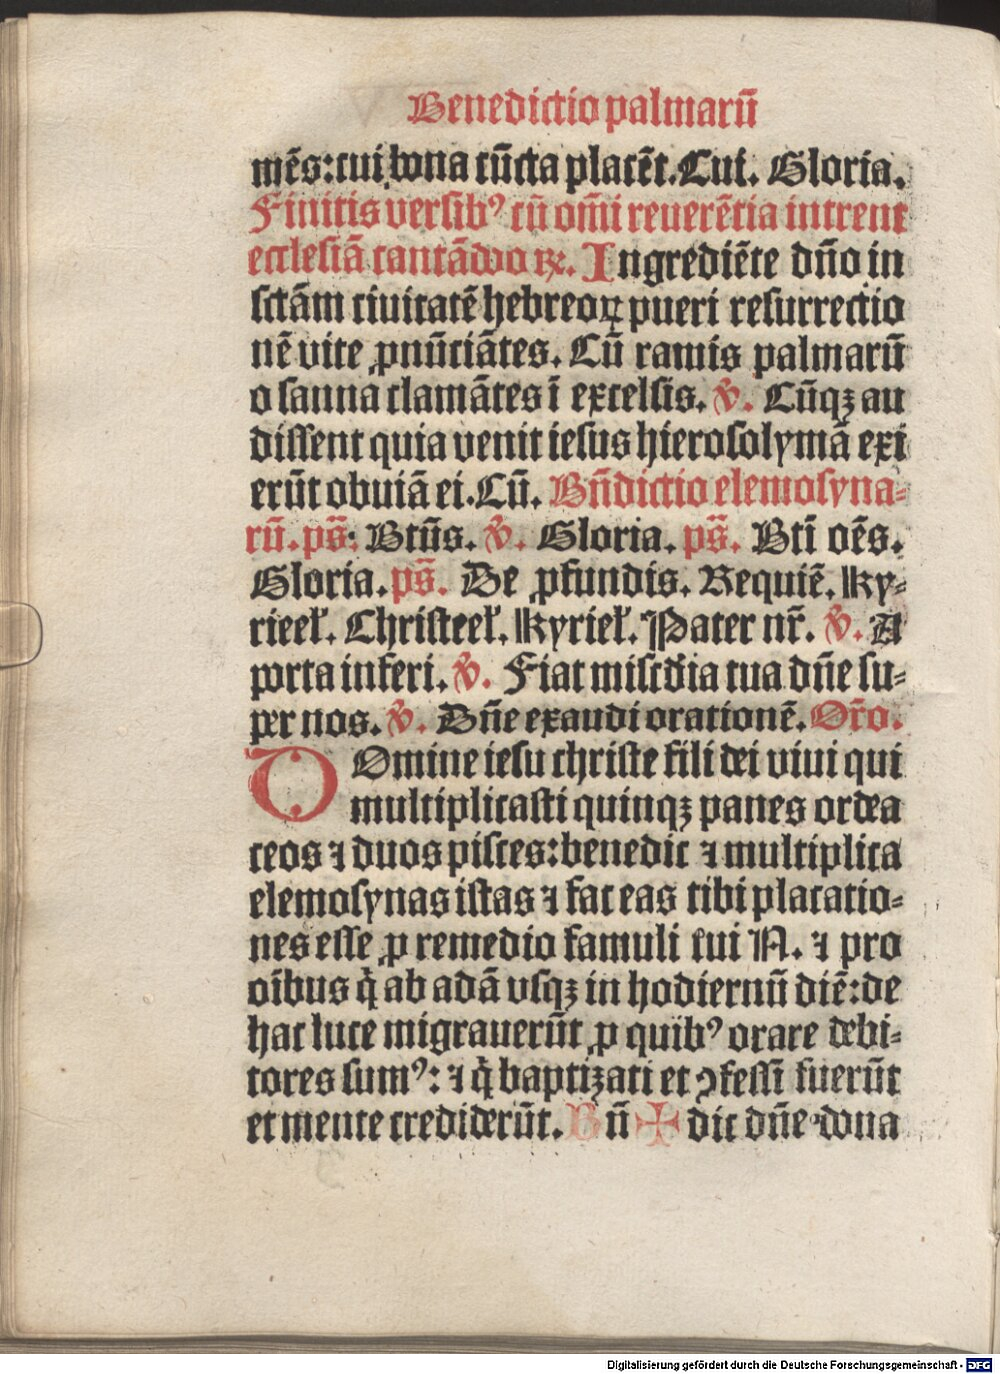 Benedictio palmarū
mēs: cui bona cūcta placēt. Cui. Gloria.
Finitis versibꝰ cū om̄i reuerētia intrent
ecclesiā cantādo ℞. Ingrediēte dn̄o in
sctām ciuitatē hebreoꝝ pueri resurrectio
nē vite ꝓnūciātes. Cū ramis palmarū
osanna clamātes ī excelsis. ℣. Cūqꝫ au
dissent quia venit iesus hierosolymā exi
erūt obuiā ei. Cū. Bn̄dictio elemosyna⸗
rū. ps̄: Btūs. ℣. Gloria. ps̄. Btī oēs.
Gloria. ps̄. De ꝓfundis. Requiē. Ky⸗
rieel̕. Christeel̕. Kyriel̕. Pater nr̄. ℣. A
porta inferi. ℣. Fiat miscd̄ia tua dn̄e su⸗
per nos. ℣. Dn̄e exaudi orationē. Or̄o.
DOmine iesu christe fili dei viui qui
multiplicasti quinqꝫ panes ordea
ceos ⁊ duos pisces: benedic ⁊ multiplica
elemosynas istas ⁊ fac eas tibi placatio⸗
nes esse ꝓ remedio famuli tui N. ⁊ pro
oībus q̇ ab adā vsqꝫ in hodiernū diē: de
hac luce migrauerūt ꝓ quibꝰ orare debi⸗
tores sumꝰ: ⁊ q̇ baptizati et ꝯfessi fuerūt
et mente crediderūt. Bn̄ ✠ dic dn̄e dona
Digitalisierung gefördert durch die Deutsche Forschungsgemeinschaft - DFG